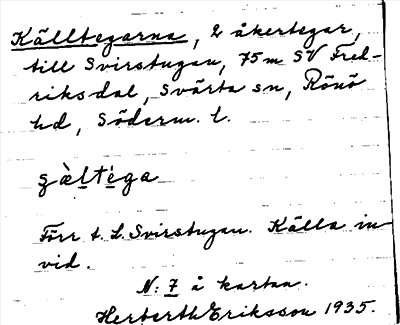 Källtegarna, 2 åkertegar,
till Svirstugan, 75 m SV Fred-
riksdal, Svärta sn, Rönö
hd, Söderm. l.
Förr t. L. Svirstugan. Källa in-
vid.
N: 7 å kartan.
Herberth Eriksson 1935.